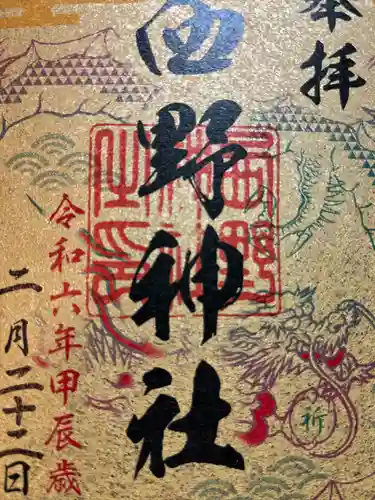 奉拝
西野神社
令和六年甲辰歳
二月二十二日
祈